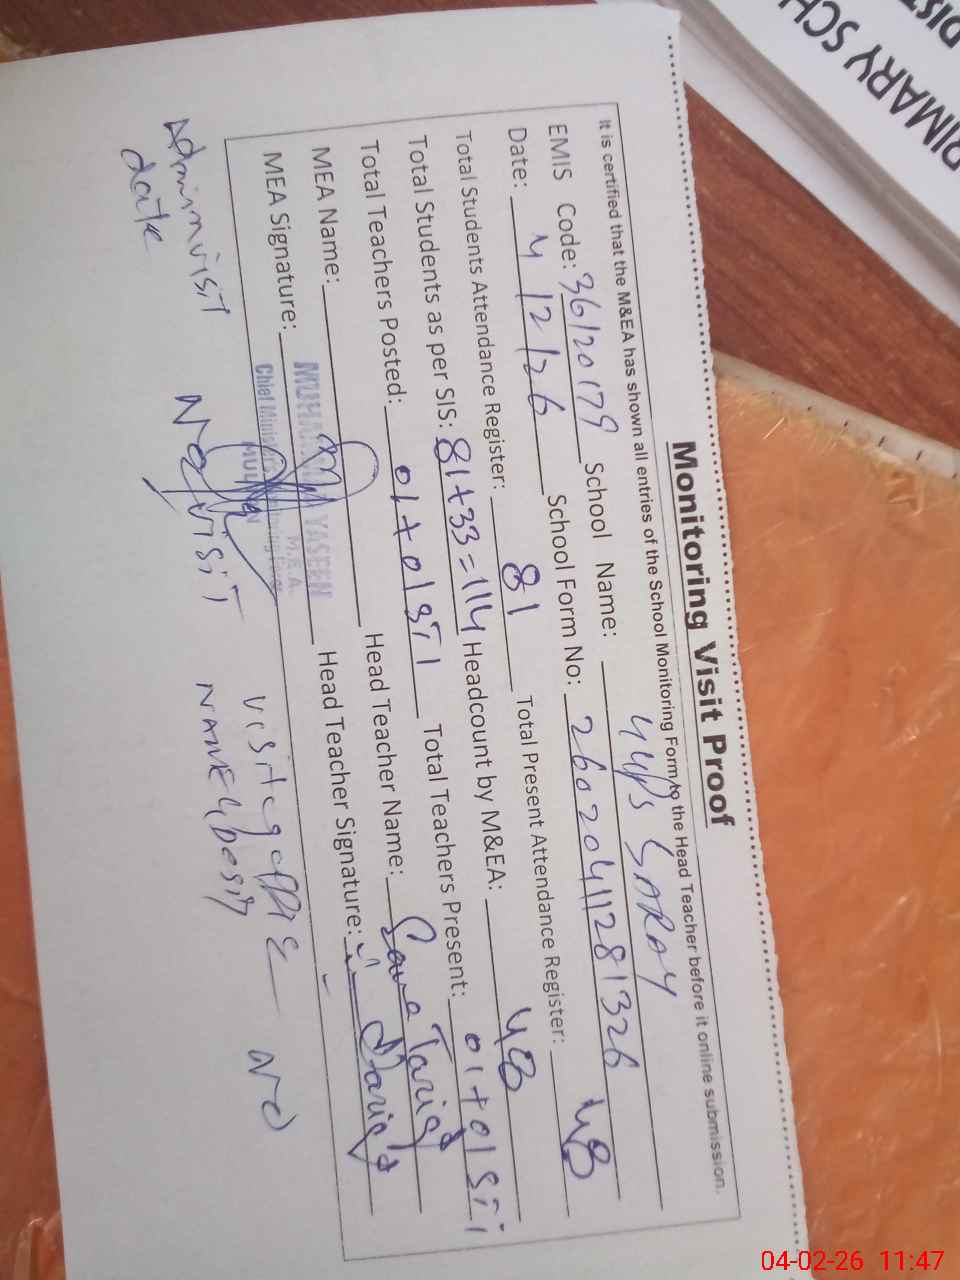 PRIMARY SCH
DIST
Monitoring Visit Proof
It is certified that the M&EA has shown all entries of the School Monitoring Form to the Head Teacher before it online submission.
EMIS Code: 36120179 School Name: GGPS SARAY
Date: 4/2/26 School Form No: 26020411281326
Total Students Attendance Register: 81 Total Present Attendance Register: 48
Total Students as per SIS: 81+33=114 Headcount by M&EA: 48
Total Teachers Posted: 01+01STI Total Teachers Present: 01+01STI
MEA Name: Head Teacher Name: Sana Tariq
MEA Signature: Head Teacher Signature: S.Tariq
YASEEN
M.E.A.
Chief Minis
Admin visit No visit visit
date NAME (desig No
04-02-26 11:47